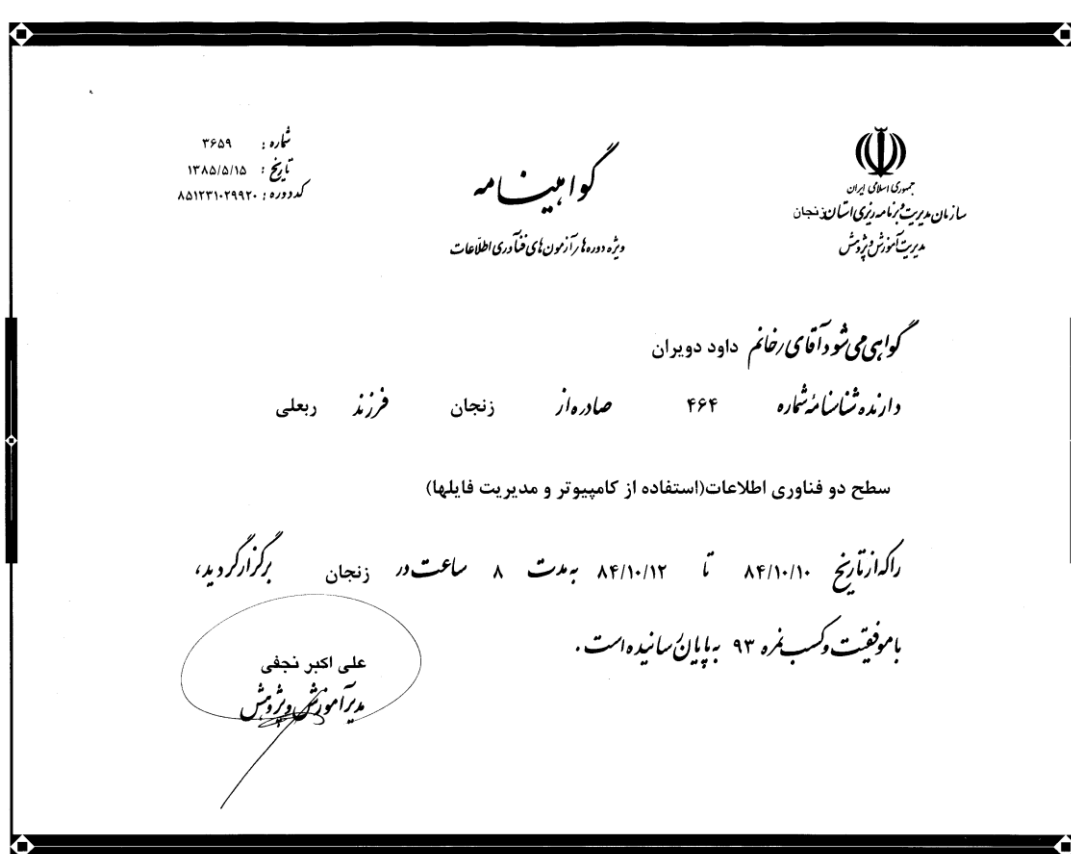 جمهوری اسلامی ایران
سازمان مدیریت و برنامه ریزی استان زنجان
مدیریت آموزش و پژوهش
گواهینامه
ویژه دوره ها / آزمون های فنّآوری اطلّاعات
شماره : ۳۶۵۹
تاریخ : ۱۳۸۵/۵/۱۵
کد دوره : ۸۵۱۲۳۱۰۲۹۹۲۰
گواهی می شود آقای / خانم داود دویران
دارنده شناسنامه شماره ۴۶۴ صادره از زنجان فرزند ربعلی
سطح دو فناوری اطلاعات(استفاده از کامپیوتر و مدیریت فایلها)
را که از تاریخ ۸۴/۱۰/۱۰ تا ۸۴/۱۰/۱۲ به مدت ۸ ساعت در زنجان برگزار گردید،
با موفقیت و کسب نمره ۹۳ به پایان رسانیده است .
علی اکبر نجفی
مدیر آموزش و پژوهش